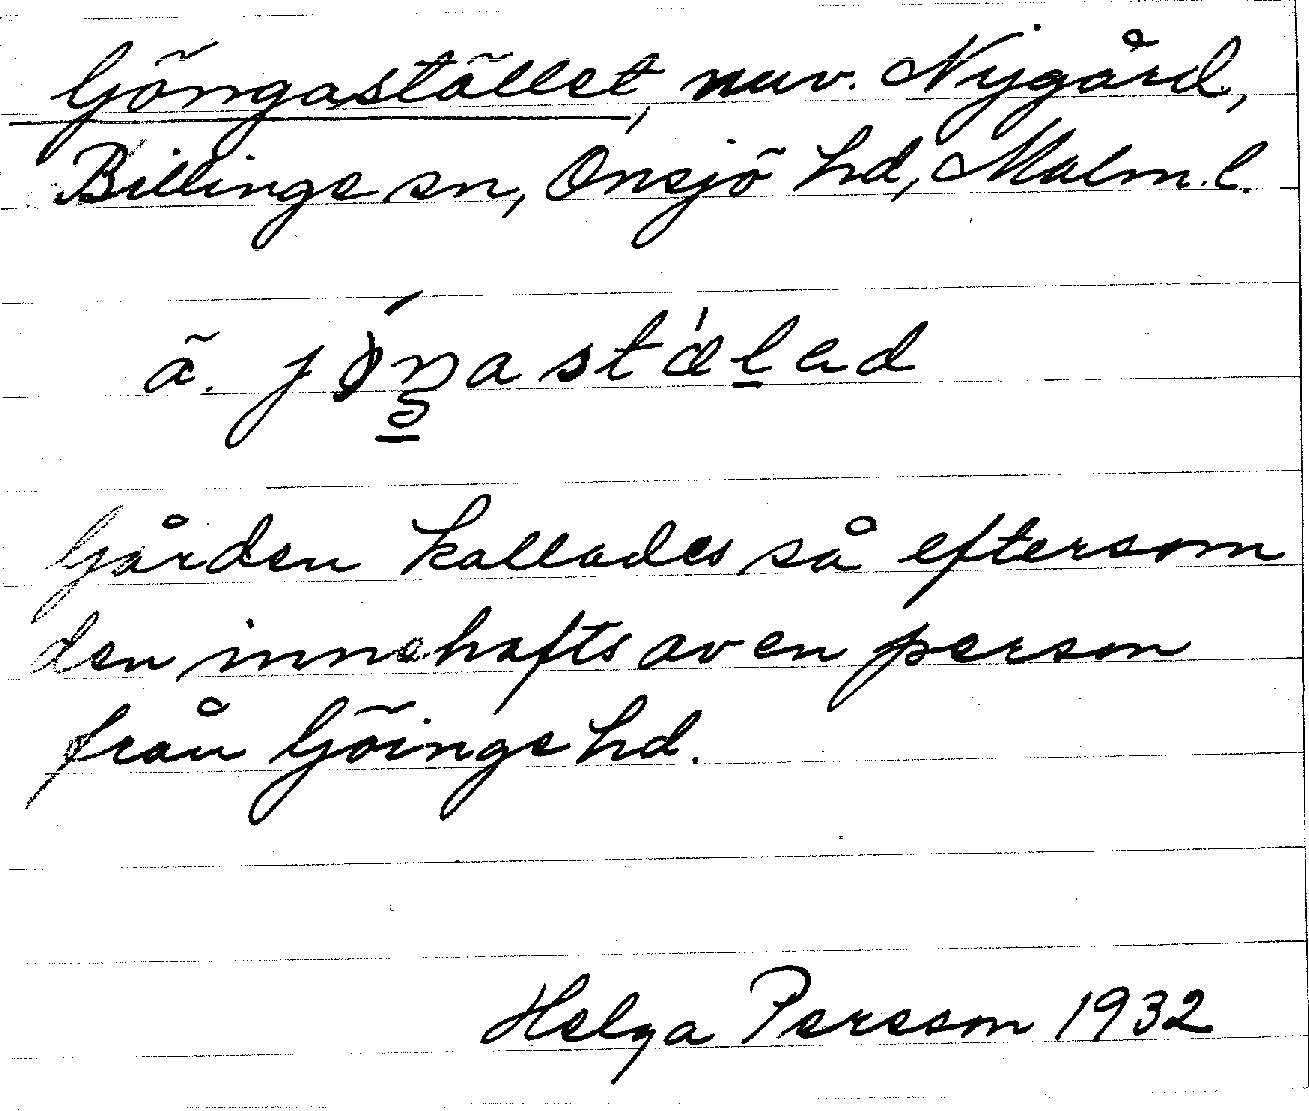 Göngastället, nuv. Nygård,
Billinge sn, Onsjö hd, Malm.l.
ä. jöŋastäləd
Gården kallades så eftersom
den innehafts av en person
från Göinge hd.
Helga Persson 1932